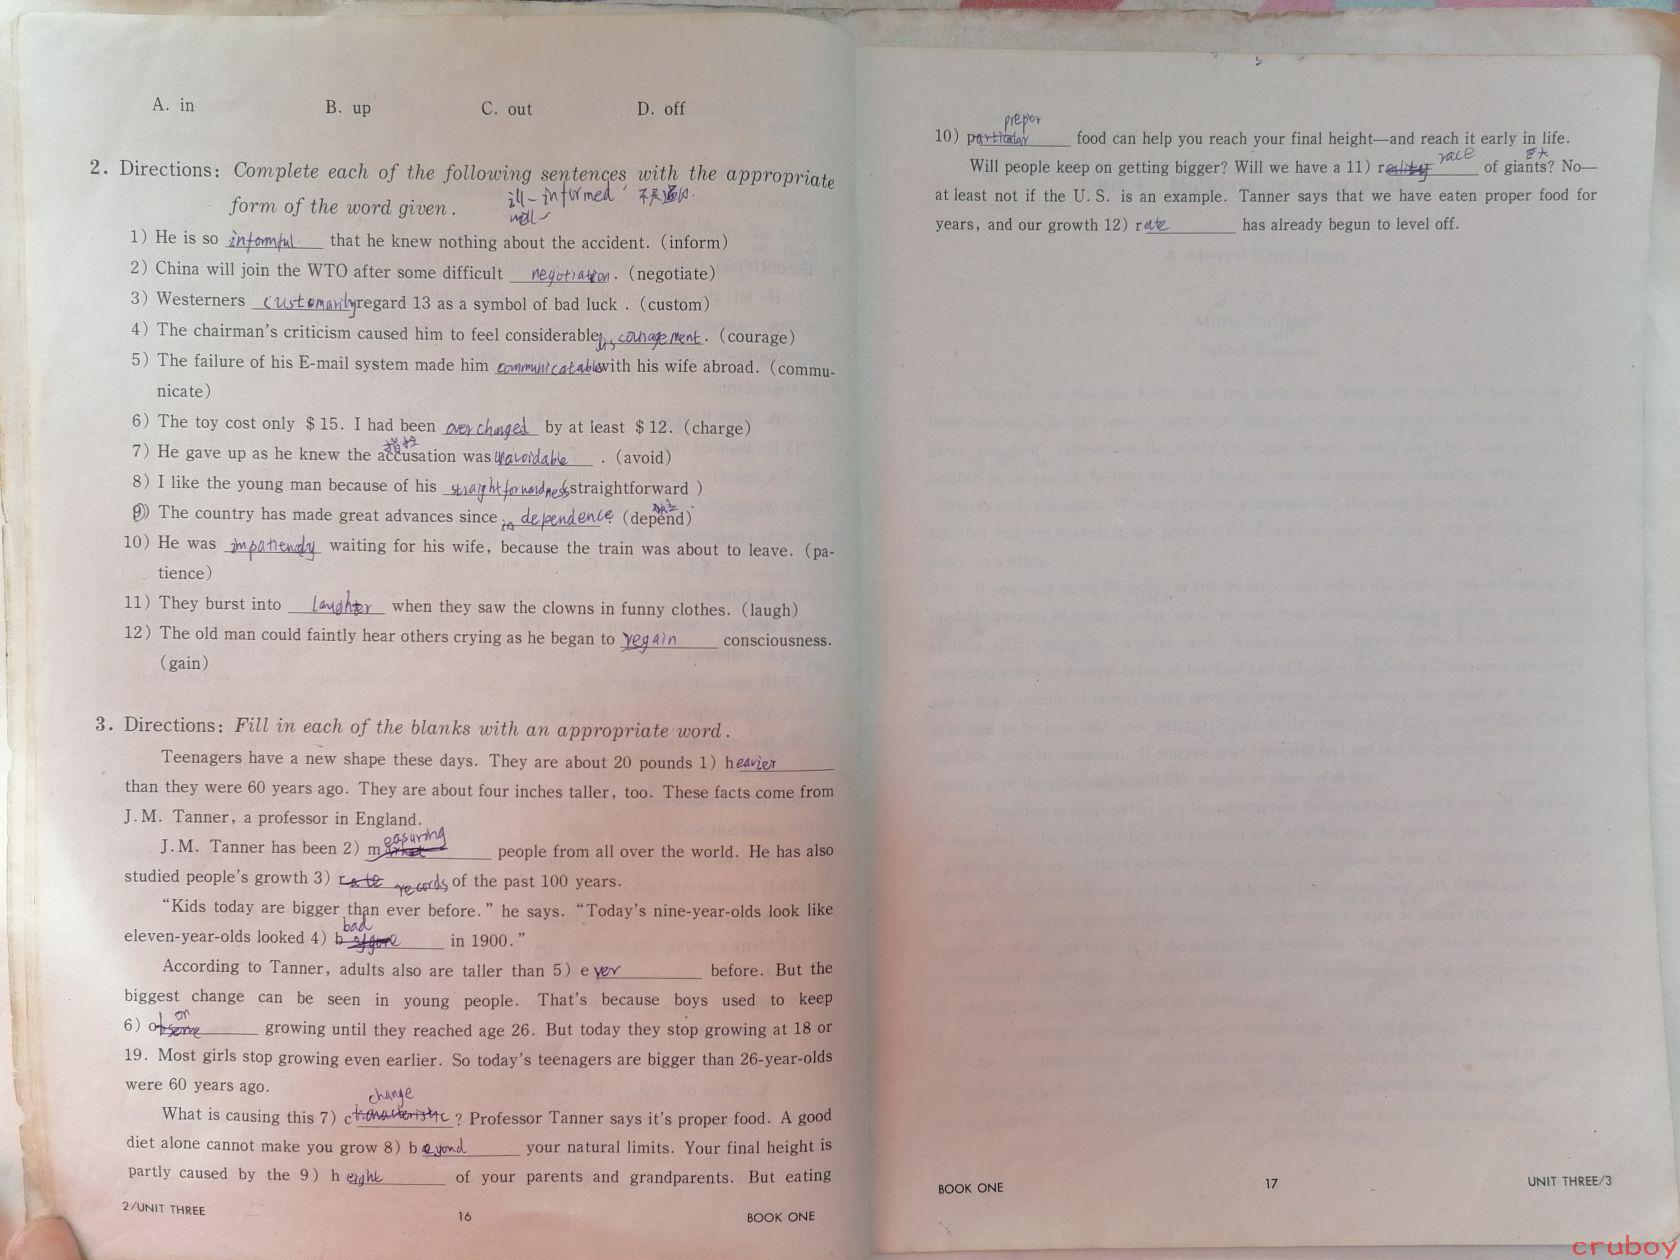 A. in B. up C. out D. off
2. Directions: Complete each of the following sentences with the appropriate
form of the word given.
ill-informed
well
1) He is so informful that he knew nothing about the accident. (inform)
2) China will join the WTO after some difficult negotiation. (negotiate)
3) Westerners customarily regard 13 as a symbol of bad luck. (custom)
4) The chairman's criticism caused him to feel considerable couragement. (courage)
5) The failure of his E-mail system made him communicatable with his wife abroad. (commu-
nicate)
6) The toy cost only $15. I had been overcharged by at least $12. (charge)
指控
7) He gave up as he knew the accusation was unavoidable. (avoid)
8) I like the young man because of his straightforwardness (straightforward)
9) The country has made great advances since independence. (depend)
10) He was impatiently waiting for his wife, because the train was about to leave. (pa-
tience)
11) They burst into laughter when they saw the clowns in funny clothes. (laugh)
12) The old man could faintly hear others crying as he began to regain consciousness.
(gain)
3. Directions: Fill in each of the blanks with an appropriate word.
Teenagers have a new shape these days. They are about 20 pounds 1) heavier
than they were 60 years ago. They are about four inches taller, too. These facts come from
J.M. Tanner, a professor in England.
easuring
J.M. Tanner has been 2) market people from all over the world. He has also
studied people's growth 3) rate records of the past 100 years.
"Kids today are bigger than ever before." he says. "Today's nine-year-olds look like
bad
eleven-year-olds looked 4) b in 1900."
According to Tanner, adults also are taller than 5) ever before. But the
biggest change can be seen in young people. That's because boys used to keep
on
6) observe growing until they reached age 26. But today they stop growing at 18 or
19. Most girls stop growing even earlier. So today's teenagers are bigger than 26-year-olds
were 60 years ago.
change
What is causing this 7) characteristic? Professor Tanner says it's proper food. A good
diet alone cannot make you grow 8) beyond your natural limits. Your final height is
partly caused by the 9) height of your parents and grandparents. But eating
2/UNIT THREE 16 BOOK ONE
prepor
10) particular food can help you reach your final height—and reach it early in life.
race
Will people keep on getting bigger? Will we have a 11) reality of giants? No—
at least not if the U.S. is an example. Tanner says that we have eaten proper food for
years, and our growth 12) rate has already begun to level off.
BOOK ONE 17 UNIT THREE/3
cruboy